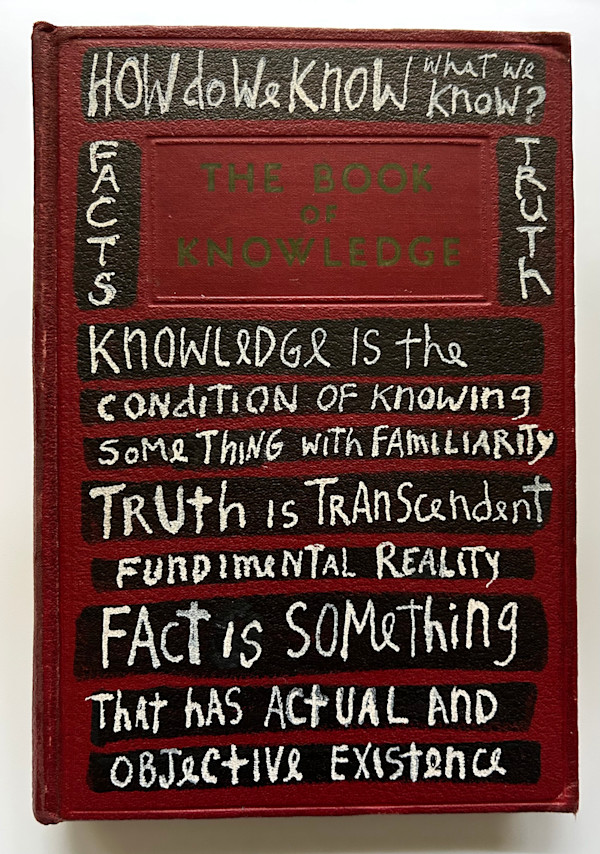 HOW do We KNOW what we KNOW?
FACTS
THE BOOK
OF
KNOWLEDGE
TRUTh
KNOWLeDGe IS the
CONdITION OF KNOWING
SOMe THING WITH FAMILIARITY
TRUth is TRANScendent
FUNDIMeNTAL REALITY
FAct is SOMething
That hAS ACtUAL AND
OBJective EXIStence